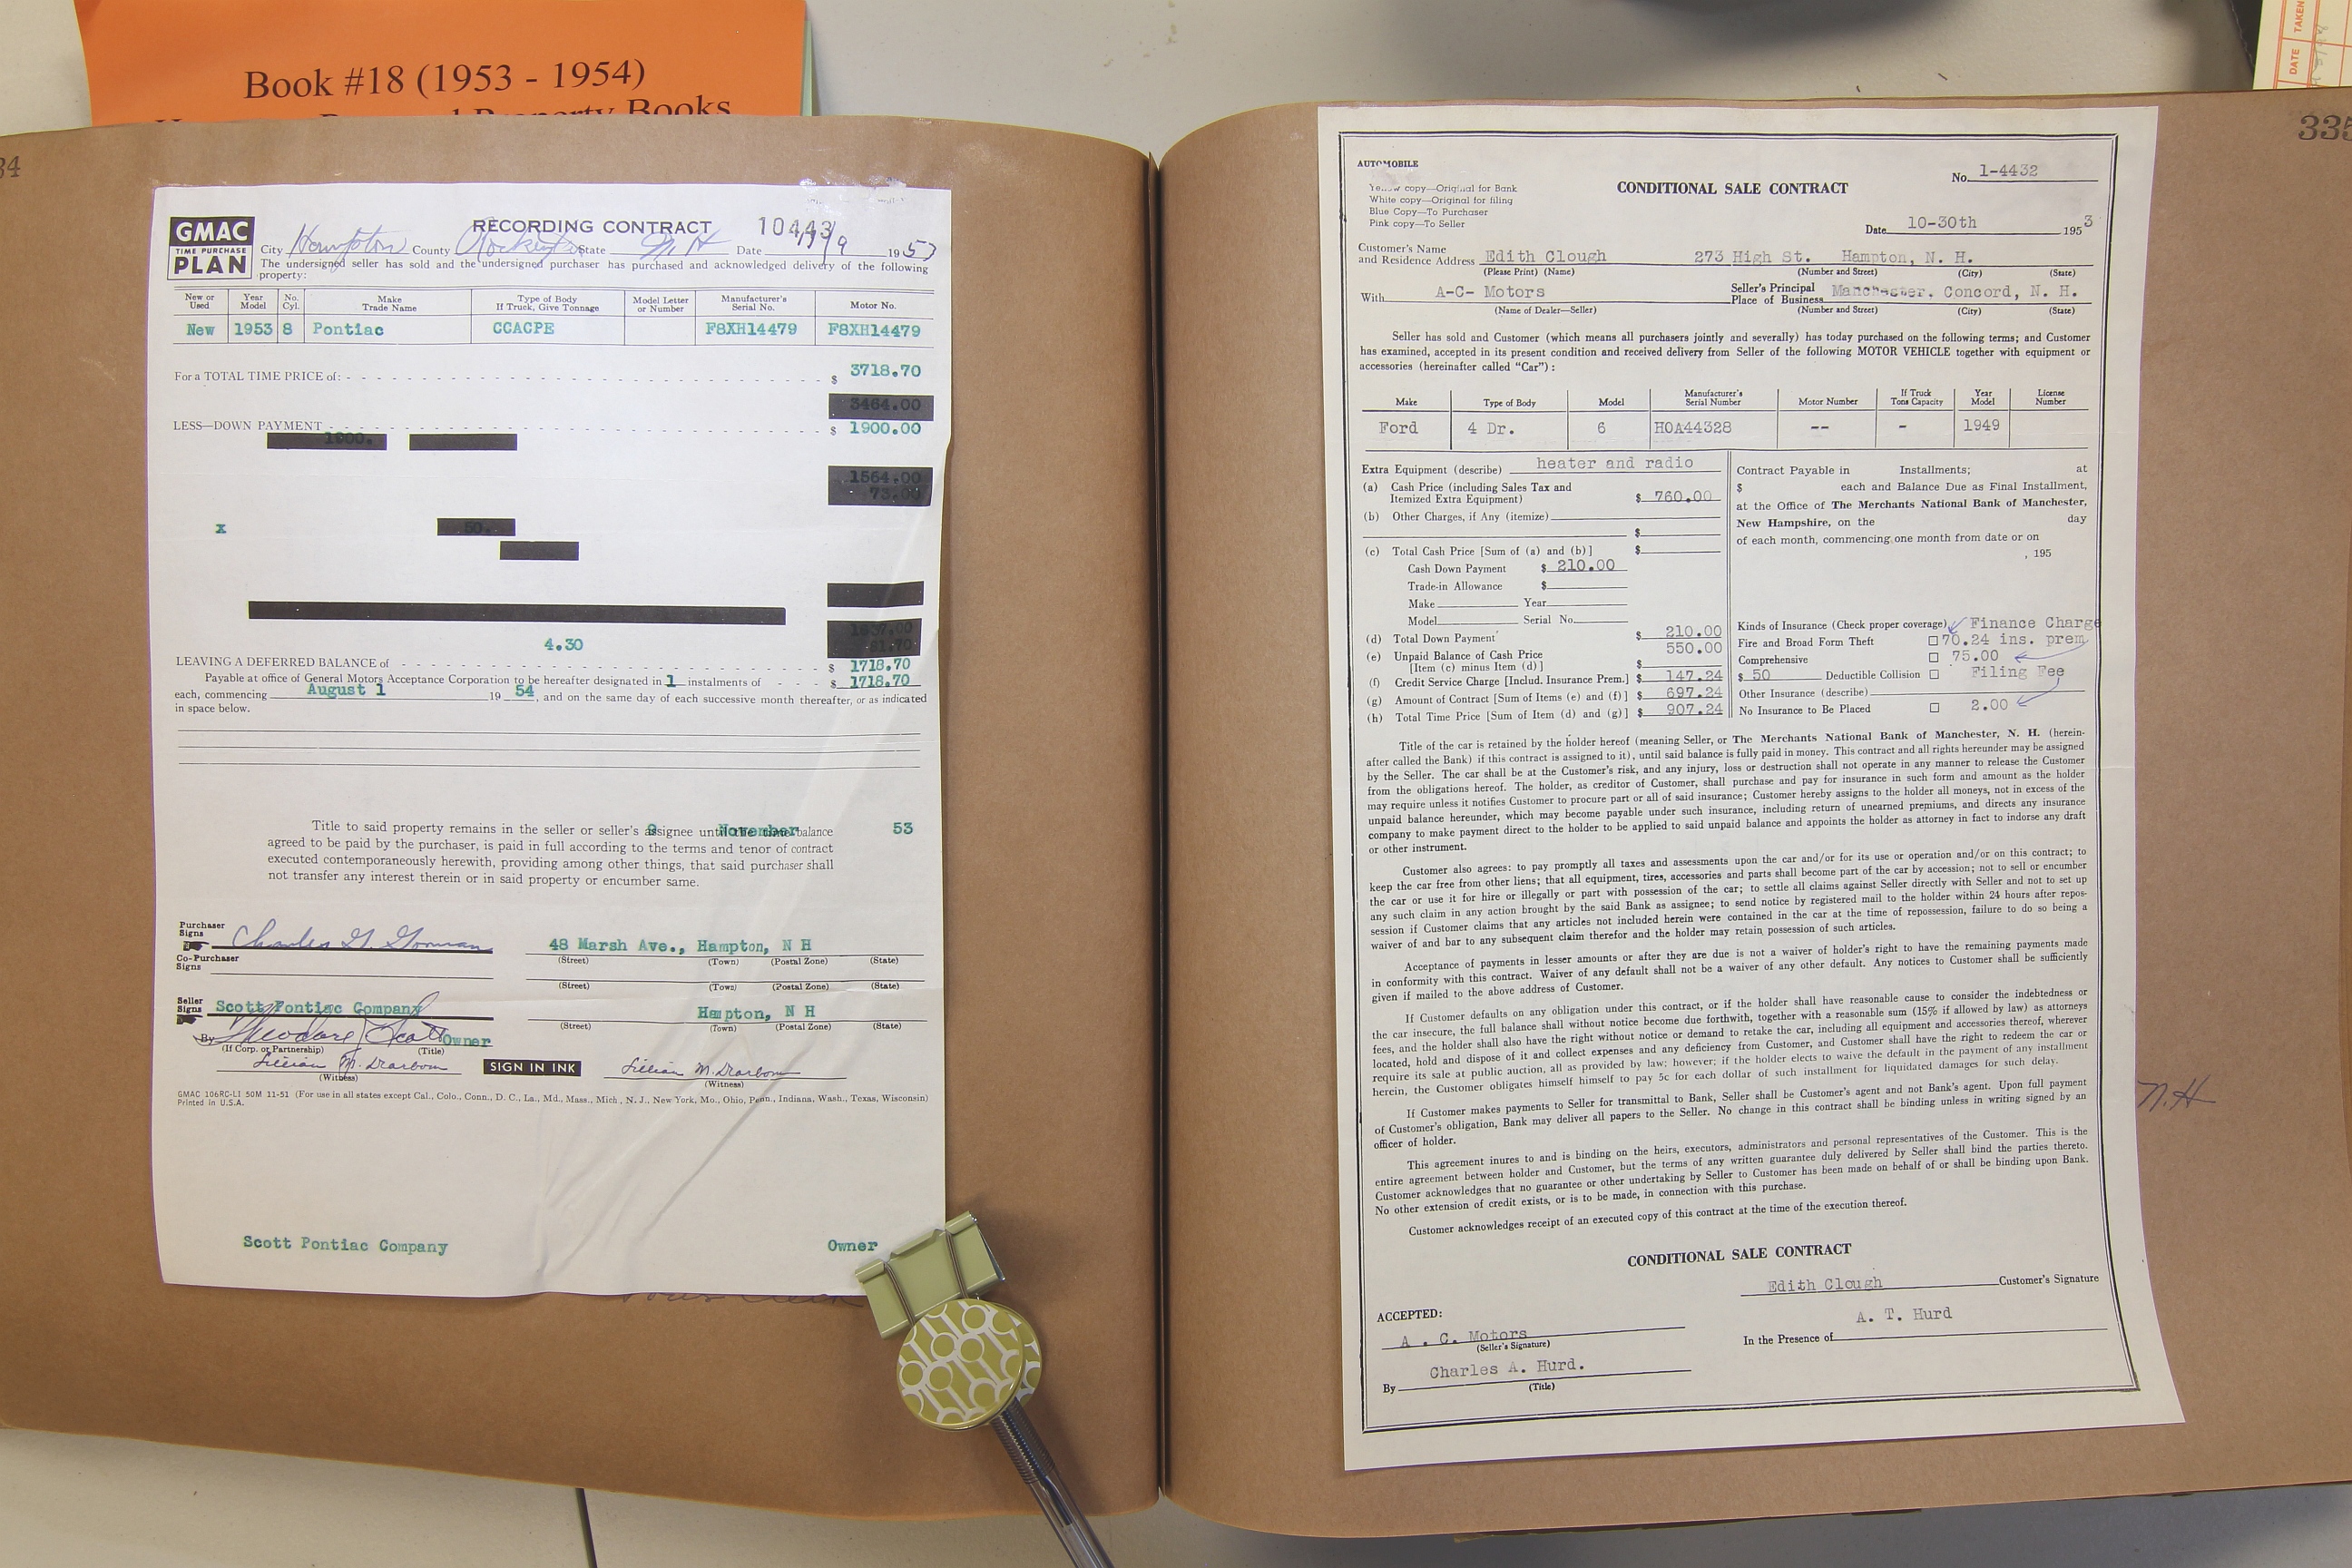 Book #18 (1953 - 1954)
Property Books
DATE
TAKEN
34
GMAC
TIME PURCHASE
PLAN
RECORDING CONTRACT 10443
City Hampton County Rockingham State N H Date 11/9 1953
The undersigned seller has sold and the undersigned purchaser has purchased and acknowledged delivery of the following
property:
New or Used Year Model No. Cyl. Make Trade Name Type of Body If Truck, Give Tonnage Model Letter or Number Manufacturer's Serial No. Motor No.
New 1953 8 Pontiac CCACPE F8XH14479 F8XH14479
For a TOTAL TIME PRICE of: $ 3718.70
3464.00
LESS—DOWN PAYMENT $ 1900.00
1900.
1564.00
73.00
x 50.
1637.00
81.70
4.30
LEAVING A DEFERRED BALANCE of $ 1718.70
Payable at office of General Motors Acceptance Corporation to be hereafter designated in 1 instalments of $ 1718.70
each, commencing August 1 19 54, and on the same day of each successive month thereafter, or as indicated
in space below.
9 November 53
Title to said property remains in the seller or seller's assignee until the time balance
agreed to be paid by the purchaser, is paid in full according to the terms and tenor of contract
executed contemporaneously herewith, providing among other things, that said purchaser shall
not transfer any interest therein or in said property or encumber same.
Purchaser Signs Charles G. Gorman 48 Marsh Ave., Hampton, N H
(Street) (Town) (Postal Zone) (State)
Co-Purchaser Signs
(Street) (Town) (Postal Zone) (State)
Seller Signs Scott Pontiac Company Hampton, N H
(Street) (Town) (Postal Zone) (State)
By Theodore Scott Owner
(If Corp. or Partnership) (Title)
Lillian M. Dearborn SIGN IN INK Lillian M. Dearborn
(Witness) (Witness)
GMAC 106RC-LI 50M 11-51 (For use in all states except Cal., Colo., Conn., D. C., La., Md., Mass., Mich., N. J., New York, Mo., Ohio, Penn., Indiana, Wash., Texas, Wisconsin)
Printed in U.S.A.
Scott Pontiac Company Owner
335
AUTOMOBILE
Yellow copy—Original for Bank
White copy—Original for filing
Blue Copy—To Purchaser
Pink copy—To Seller
CONDITIONAL SALE CONTRACT
No. 1-4432
Date 10-30th 1953
Customer's Name
and Residence Address Edith Clough 273 High St. Hampton, N. H.
(Please Print) (Name) (Number and Street) (City) (State)
With A-C- Motors Seller's Principal Place of Business Manchester. Concord, N. H.
(Name of Dealer—Seller) (Number and Street) (City) (State)
Seller has sold and Customer (which means all purchasers jointly and severally) has today purchased on the following terms; and Customer
has examined, accepted in its present condition and received delivery from Seller of the following MOTOR VEHICLE together with equipment or
accessories (hereinafter called “Car”) :
Make Type of Body Model Manufacturer's Serial Number Motor Number If Truck Tons Capacity Year Model License Number
Ford 4 Dr. 6 HOA44328 -- - 1949
Extra Equipment (describe) heater and radio
(a) Cash Price (including Sales Tax and
Itemized Extra Equipment) $ 760.00
(b) Other Charges, if Any (itemize)
$
(c) Total Cash Price [Sum of (a) and (b)] $
Cash Down Payment $ 210.00
Trade-in Allowance $
Make Year
Model Serial No.
(d) Total Down Payment $ 210.00
(e) Unpaid Balance of Cash Price 550.00
[Item (c) minus Item (d)] $
(f) Credit Service Charge [Includ. Insurance Prem.] $ 147.24
(g) Amount of Contract [Sum of Items (e) and (f)] $ 697.24
(h) Total Time Price [Sum of Item (d) and (g)] $ 907.24
Contract Payable in Installments; at
$ each and Balance Due as Final Installment,
at the Office of The Merchants National Bank of Manchester,
New Hampshire, on the day
of each month, commencing one month from date or on
, 195
Kinds of Insurance (Check proper coverage) Finance Charge
Fire and Broad Form Theft ☐ 70.24 ins. prem
Comprehensive ☐ 75.00
$ 50 Deductible Collision ☐ Filing Fee
Other Insurance (describe)
No Insurance to Be Placed ☐ 2.00
Title of the car is retained by the holder hereof (meaning Seller, or The Merchants National Bank of Manchester, N. H. (herein-
after called the Bank) if this contract is assigned to it), until said balance is fully paid in money. This contract and all rights hereunder may be assigned
by the Seller. The car shall be at the Customer's risk, and any injury, loss or destruction shall not operate in any manner to release the Customer
from the obligations hereof. The holder, as creditor of Customer, shall purchase and pay for insurance in such form and amount as the holder
may require unless it notifies Customer to procure part or all of said insurance; Customer hereby assigns to the holder all moneys, not in excess of the
unpaid balance hereunder, which may become payable under such insurance, including return of unearned premiums, and directs any insurance
company to make payment direct to the holder to be applied to said unpaid balance and appoints the holder as attorney in fact to indorse any draft
or other instrument.
Customer also agrees: to pay promptly all taxes and assessments upon the car and/or for its use or operation and/or on this contract; to
keep the car free from other liens; that all equipment, tires, accessories and parts shall become part of the car by accession; not to sell or encumber
the car or use it for hire or illegally or part with possession of the car; to settle all claims against Seller directly with Seller and not to set up
any such claim in any action brought by the said Bank as assignee; to send notice by registered mail to the holder within 24 hours after repos-
session if Customer claims that any articles not included herein were contained in the car at the time of repossession, failure to do so being a
waiver of and bar to any subsequent claim therefor and the holder may retain possession of such articles.
Acceptance of payments in lesser amounts or after they are due is not a waiver of holder's right to have the remaining payments made
in conformity with this contract. Waiver of any default shall not be a waiver of any other default. Any notices to Customer shall be sufficiently
given if mailed to the above address of Customer.
If Customer defaults on any obligation under this contract, or if the holder shall have reasonable cause to consider the indebtedness or
the car insecure, the full balance shall without notice become due forthwith, together with a reasonable sum (15% if allowed by law) as attorneys
fees, and the holder shall also have the right without notice or demand to retake the car, including all equipment and accessories thereof, wherever
located, hold and dispose of it and collect expenses and any deficiency from Customer, and Customer shall have the right to redeem the car or
require its sale at public auction, all as provided by law; however; if the holder elects to waive the default in the payment of any installment
herein, the Customer obligates himself himself to pay 5c for each dollar of such installment for liquidated damages for such delay.
If Customer makes payments to Seller for transmittal to Bank, Seller shall be Customer's agent and not Bank's agent. Upon full payment
of Customer's obligation, Bank may deliver all papers to the Seller. No change in this contract shall be binding unless in writing signed by an
officer of holder.
This agreement inures to and is binding on the heirs, executors, administrators and personal representatives of the Customer. This is the
entire agreement between holder and Customer, but the terms of any written guarantee duly delivered by Seller shall bind the parties thereto.
Customer acknowledges that no guarantee or other undertaking by Seller to Customer has been made on behalf of or shall be binding upon Bank.
No other extension of credit exists, or is to be made, in connection with this purchase.
Customer acknowledges receipt of an executed copy of this contract at the time of the execution thereof.
CONDITIONAL SALE CONTRACT
Edith Clough Customer's Signature
ACCEPTED:
A. T. Hurd
A . C. Motors In the Presence of
(Seller's Signature)
By Charles A. Hurd.
(Title)
N.H